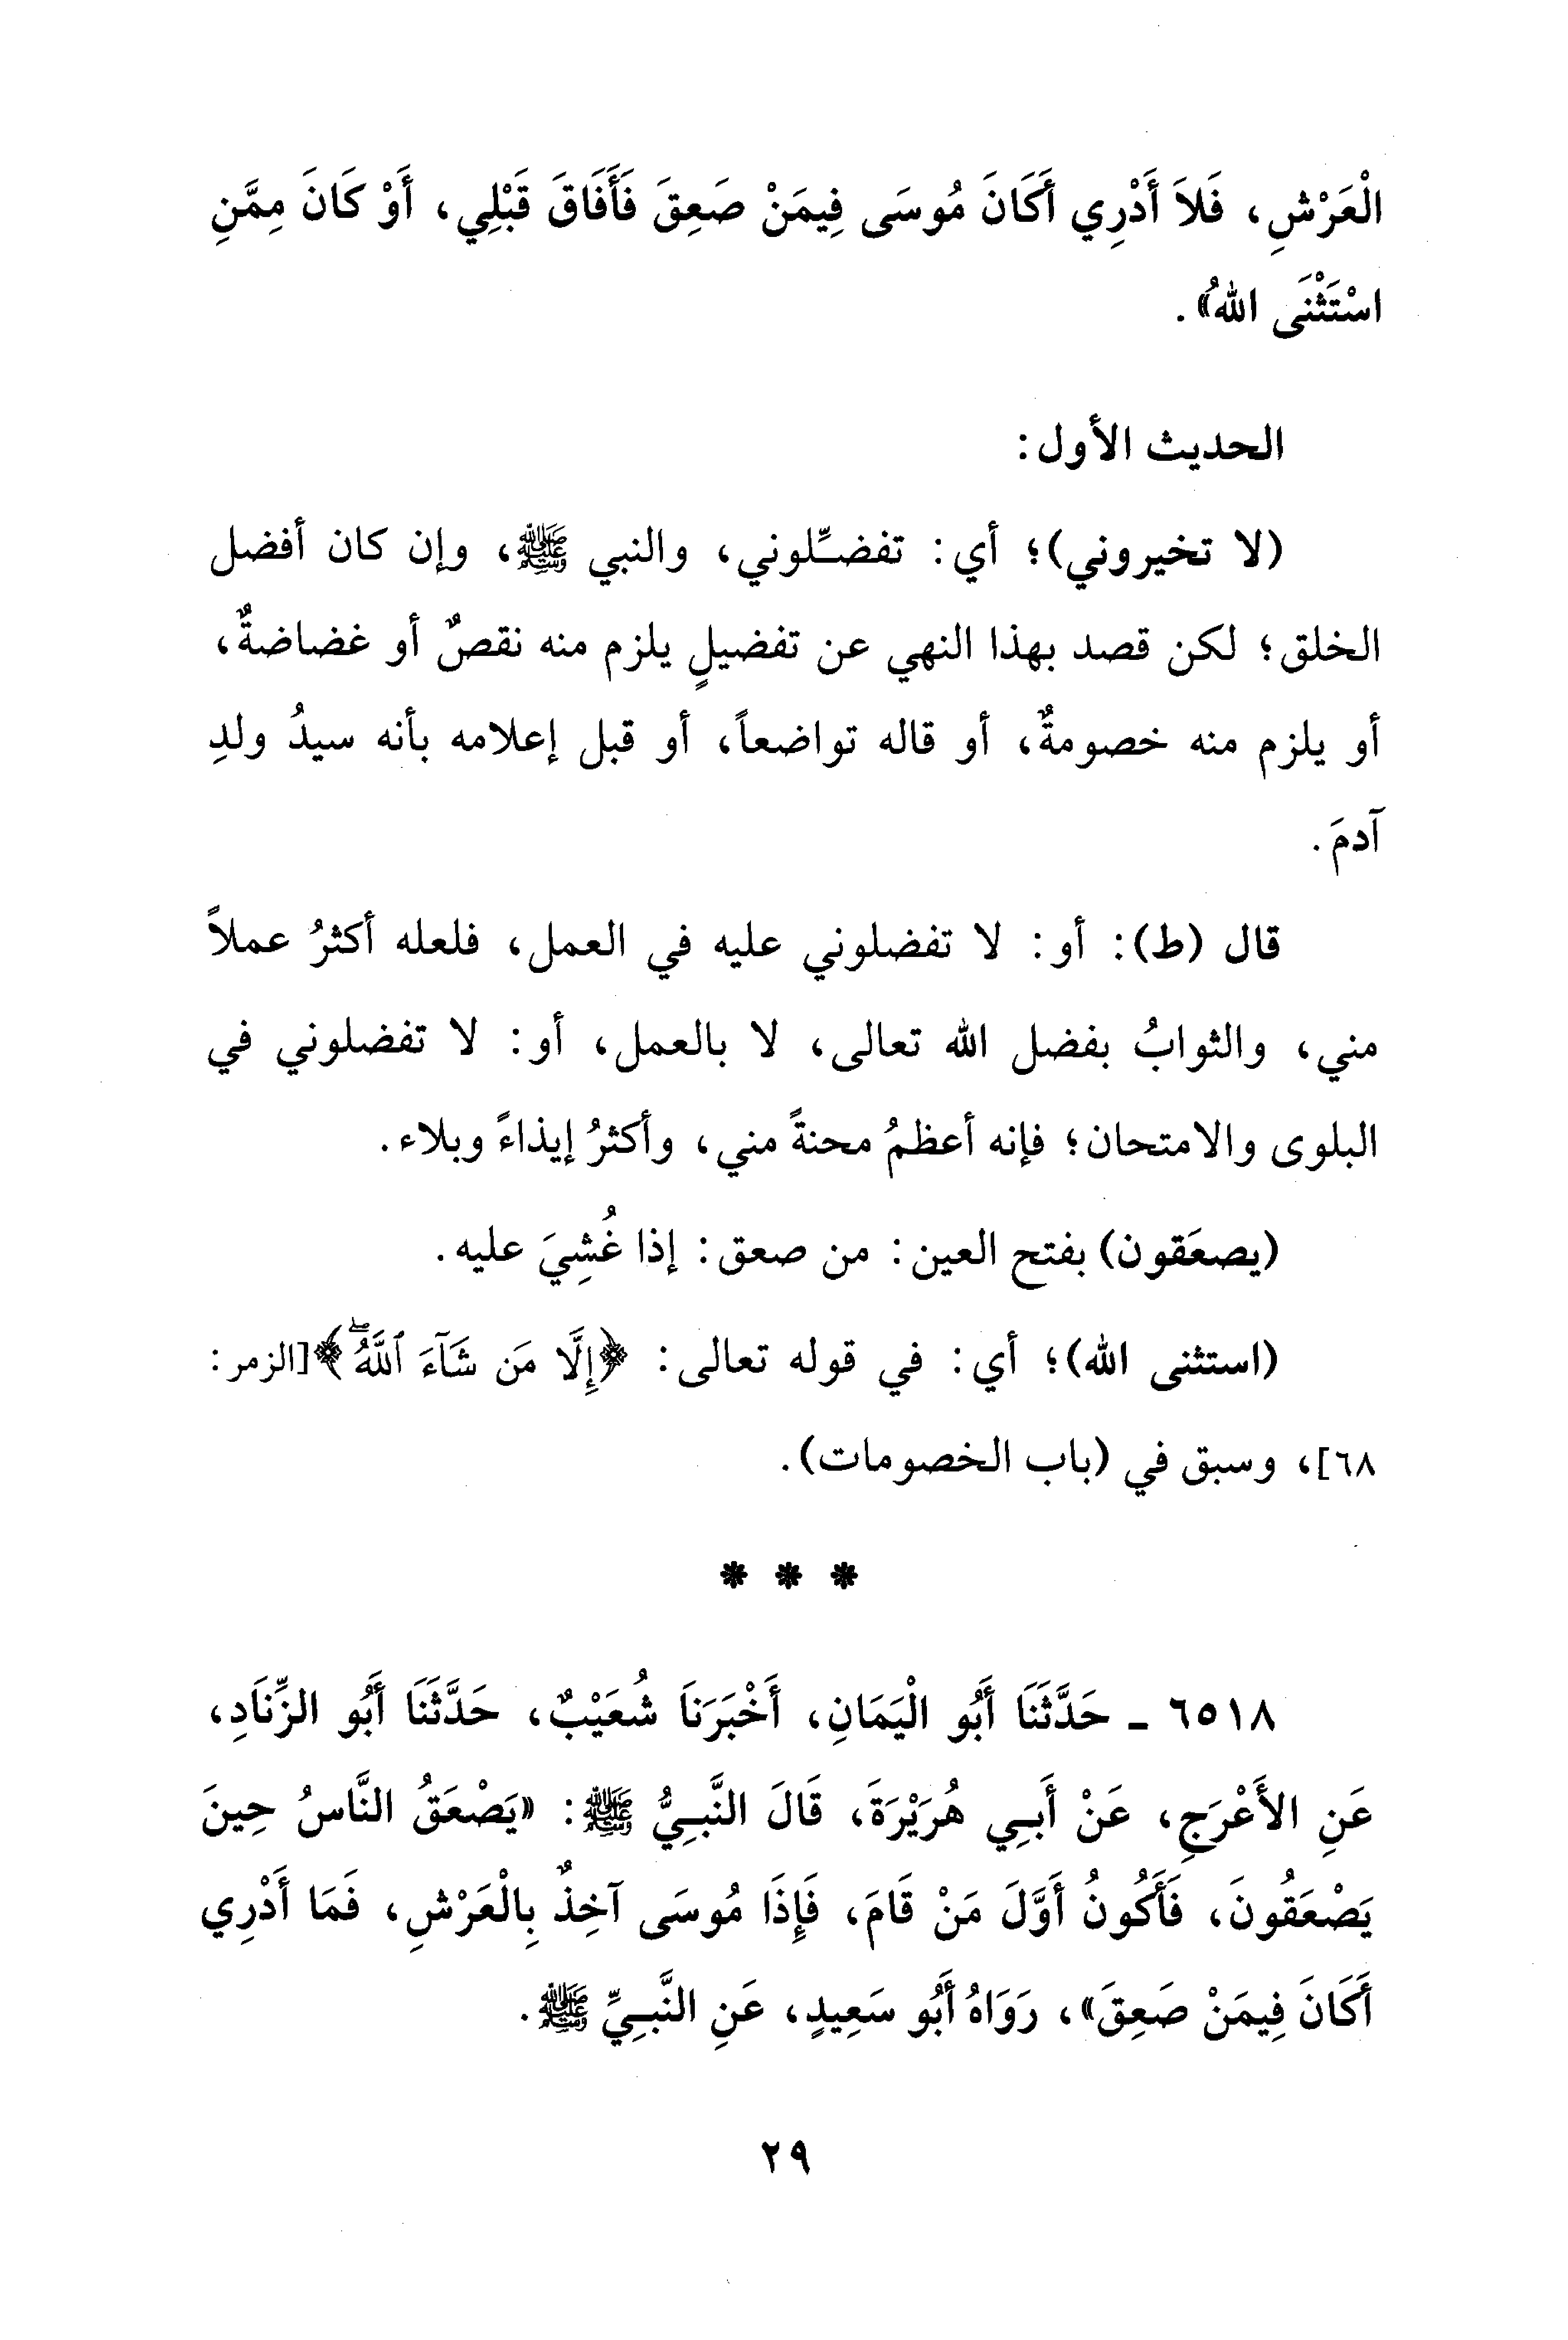 الْعَرْشِ، فَلاَ أَدْرِي أَكَانَ مُوسَى فِيمَنْ صَعِقَ فَأَفَاقَ قَبْلِي، أَوْ كَانَ مِمَّنِ
اسْتَثْنَى اللهُ».
الحديث الأول:
(لا تخيروني)؛ أي: تفضِّلوني، والنبي ﷺ، وإن كان أفضل
الخلق؛ لكن قصد بهذا النهي عن تفضيلٍ يلزم منه نقصٌ أو غضاضةٌ،
أو يلزم منه خصومةٌ، أو قاله تواضعاً، أو قبل إعلامه بأنه سيدُ ولدِ
آدمَ.
قال (ط): أو: لا تفضلوني عليه في العمل، فلعله أكثرُ عملاً
مني، والثوابُ بفضل الله تعالى، لا بالعمل، أو: لا تفضلوني في
البلوى والامتحان؛ فإنه أعظمُ محنةً مني، وأكثرُ إيذاءً وبلاء.
(يصعَقون) بفتح العين: من صعق: إذا غُشِيَ عليه.
(استثنى الله)؛ أي: في قوله تعالى: ﴿إِلَّا مَن شَآءَ ٱللَّهُۖ﴾[الزمر:
٦٨]، وسبق في (باب الخصومات).
* * *
٦٥١٨ ـ حَدَّثَنَا أَبُو الْيَمَانِ، أَخْبَرَنَا شُعَيْبٌ، حَدَّثَنَا أَبُو الزِّنَادِ،
عَنِ الأَعْرَجِ، عَنْ أَبِي هُرَيْرَةَ، قَالَ النَّبِيُّ ﷺ: «يَصْعَقُ النَّاسُ حِينَ
يَصْعَقُونَ، فَأَكُونُ أَوَّلَ مَنْ قَامَ، فَإِذَا مُوسَى آخِذٌ بِالْعَرْشِ، فَمَا أَدْرِي
أَكَانَ فِيمَنْ صَعِقَ»، رَوَاهُ أَبُو سَعِيدٍ، عَنِ النَّبِيِّ ﷺ.
٢٩